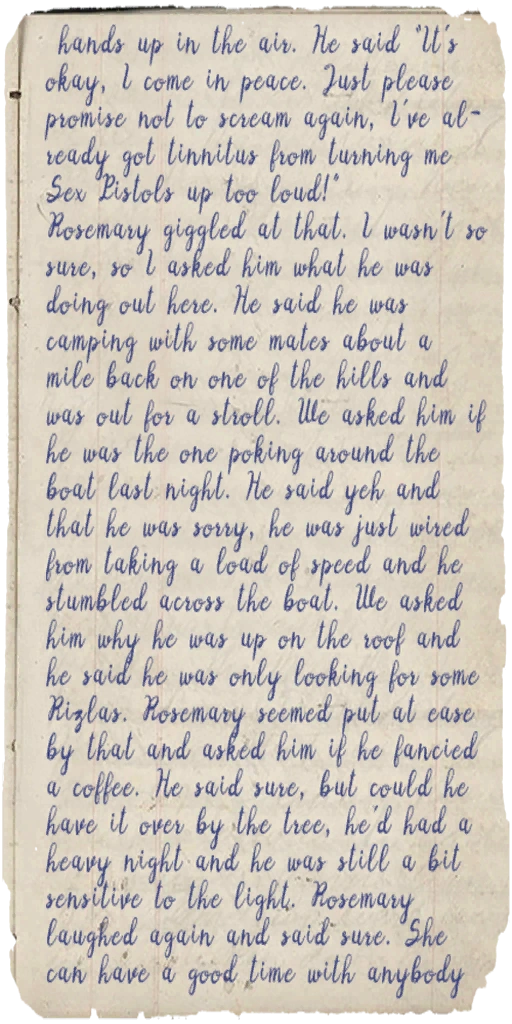 hands up in the air. He said "It's
okay, I come in peace. Just please
promise not to scream again, I've al-
ready got tinnitus from turning me
Sex Pistols up too loud!"
Rosemary giggled at that. I wasn't so
sure, so I asked him what he was
doing out here. He said he was
camping with some mates about a
mile back on one of the hills and
was out for a stroll. We asked him if
he was the one poking around the
boat last night. He said yeh and
that he was sorry, he was just wired
from taking a load of speed and he
stumbled across the boat. We asked
him why he was up on the roof and
he said he was only looking for some
Rizlas. Rosemary seemed put at ease
by that and asked him if he fancied
a coffee. He said sure, but could he
have it over by the tree, he'd had a
heavy night and he was still a bit
sensitive to the light. Rosemary
laughed again and said sure. She
can have a good time with anybody